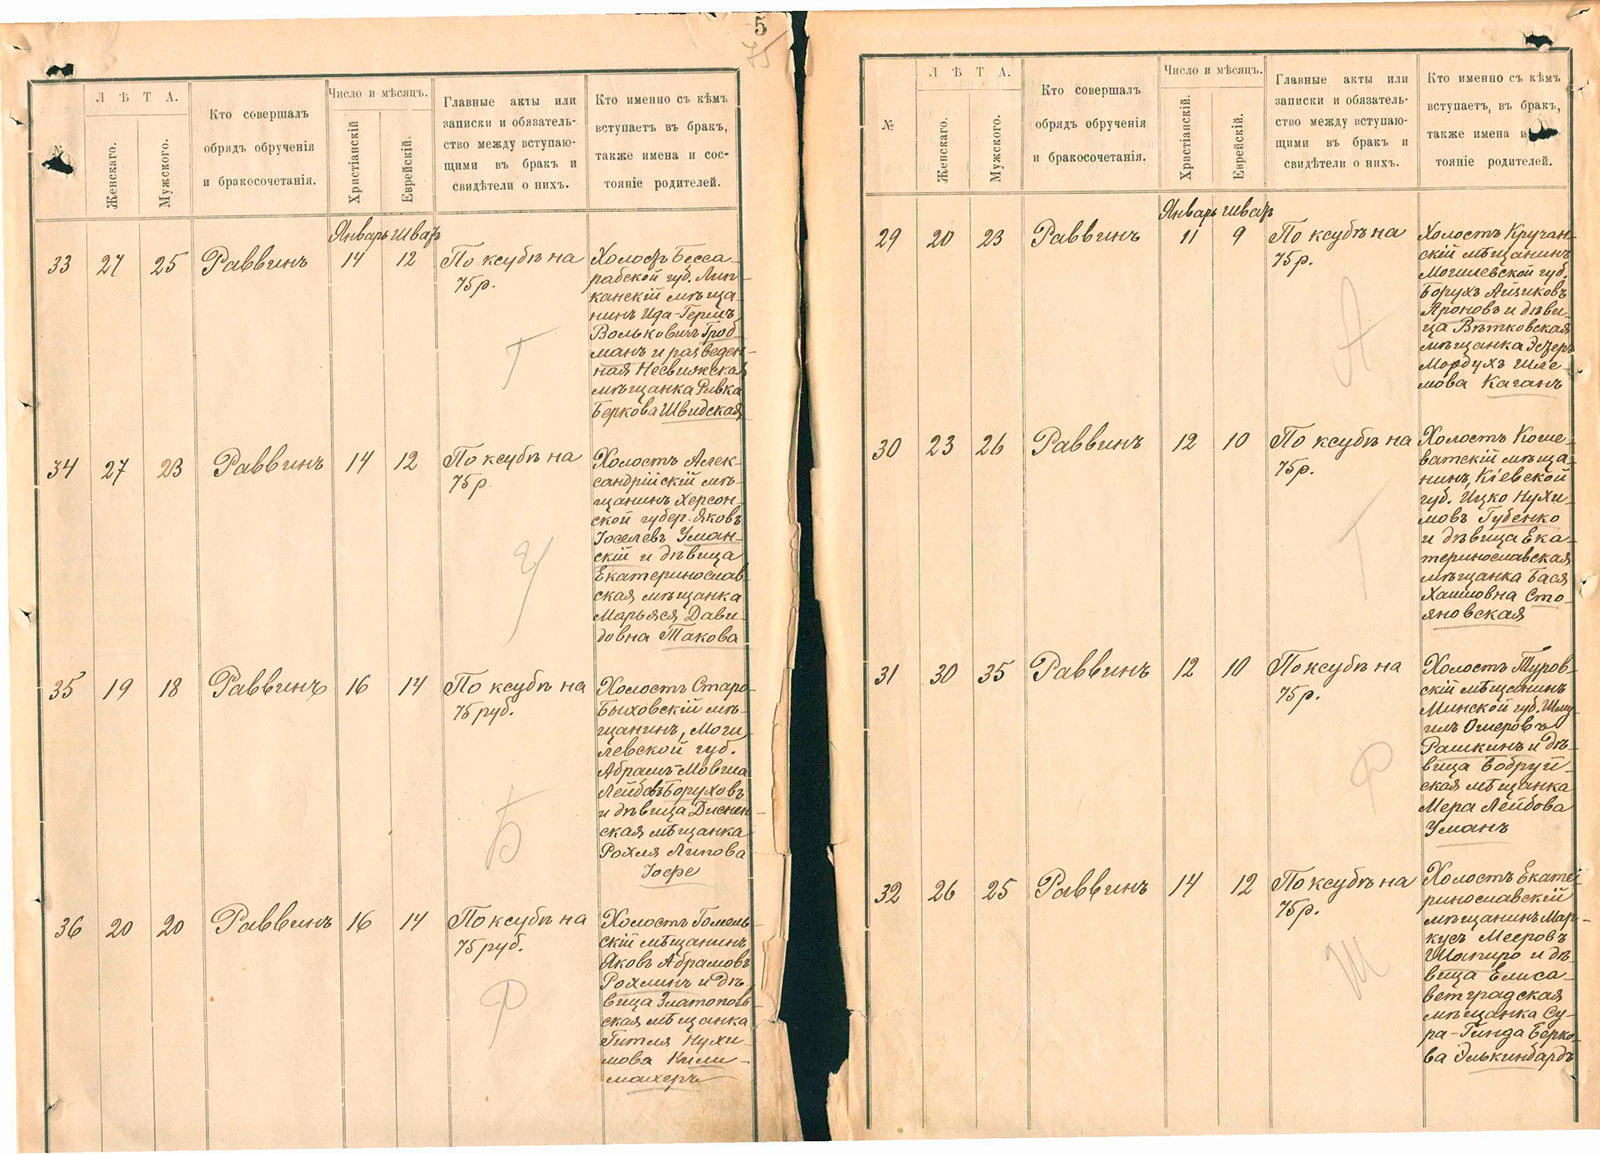 5
75
№
ЛѢТА.
Женскаго.
Мужского.
Кто совершалъ
обрядъ обрученія
и бракосочетанія.
Число и мѣсяцъ.
Христіанскій
Еврейскій.
Главные акты или
записки и обязатель-
ство между вступаю-
щими въ бракъ и
свидѣтели о нихъ.
Кто именно съ кѣмъ
вступаетъ въ бракъ,
также имена и сос-
тояніе родителей.
Январь Шватъ
33 27 25 Раввинъ 14 12
По ксубѣ на
75 р.
Г
Холостъ Бесса-
рабской губ. Лип-
канскій мѣща-
нинъ Ида-Гершъ
Вольковичъ Гроб-
манъ и разведен-
ная Несвижская
мѣщанка Ривка
Беркова Швидская
34 27 23 Раввинъ 14 12
По ксубѣ на
75 р.
У
Холостъ Алек-
сандрійскій мѣ-
щанинъ Херсон-
ской губер. Яковъ
Іоселевъ Уман-
скій и дѣвица
Екатеринослав-
ская мѣщанка
Марьяся Дави-
довна Такова
35 19 18 Раввинъ 16 14
По ксубѣ на
75 руб.
Б
Холостъ Старо-
Быховскій мѣ-
щанинъ, Моги-
левской губ.
Абрамъ-Мовша
Лейбовъ Боруховъ
и дѣвица Диснен-
ская мѣщанка
Рохля Липова
Іофе
36 20 20 Раввинъ 16 14
По ксубѣ на
75 руб.
Р
Холостъ Гомель-
скій мѣщанинъ
Яковъ Абрамовъ
Рохлинъ и дѣ-
вица Златополь-
ская мѣщанка
Гитля Нухи-
мова Кили-
махеръ
№
ЛѢТА.
Женскаго.
Мужского.
Кто совершалъ
обрядъ обрученія
и бракосочетанія.
Число и мѣсяцъ.
Христіанскій.
Еврейскій.
Главные акты или
записки и обязатель-
ство между вступаю-
щими въ бракъ и
свидѣтели о нихъ.
Кто именно съ кѣмъ
вступаетъ, въ бракъ,
также имена и
тояніе родителей.
Январь Шватъ
29 20 23 Раввинъ 11 9
По ксубѣ на
75 р.
А
Холостъ Кручан-
скій мѣщанинъ
Могилевской губ.
Борухъ Айциковъ
Ароновъ и дѣви-
ца Вѣтковская
мѣщанка Эстеръ
Мордухъ Шле-
мова Каганъ
30 23 26 Раввинъ 12 10
По ксубѣ на
75 р.
Г
Холостъ Коше-
ватскій мѣща-
нинъ, Кіевской
губ. Ицко Нухи-
мовъ Губенко
и дѣвица Ека-
теринославская
мѣщанка Бася
Хаимовна Сто-
яновская
31 30 35 Раввинъ 12 10
По ксубѣ на
75 р.
Р
Холостъ Туров-
скій мѣщанинъ
Минской губ. Шму-
илъ Ошеровъ
Рашкинъ и дѣ-
вица Бобруй-
ская мѣщанка
Мера Лейбова
Уманъ
32 26 25 Раввинъ 14 12
По ксубѣ на
75 р.
Ш
Холостъ Екате-
ринославскій
мѣщанинъ Мар-
кусъ Мееровъ
Шапиро и дѣ-
вица Елиса-
ветградская
мѣщанка Су-
ра-Гинда Берко-
ва Элькинбардъ